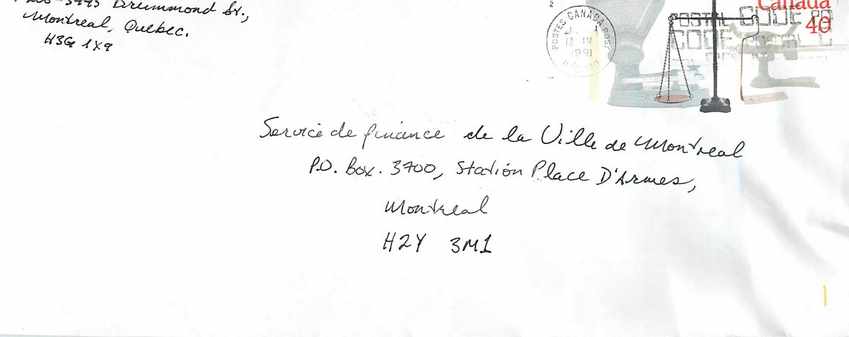 3495 Drummond St.,
Montreal, Quebec.
H3G 1X9
POSTES CANADA POST
1991
POSTAL CODE
CODE
Canada
40
Service de finance de la Ville de Montreal
P.O. Box. 3700, Station Place D'Armes,
Montreal
H2Y 3M1